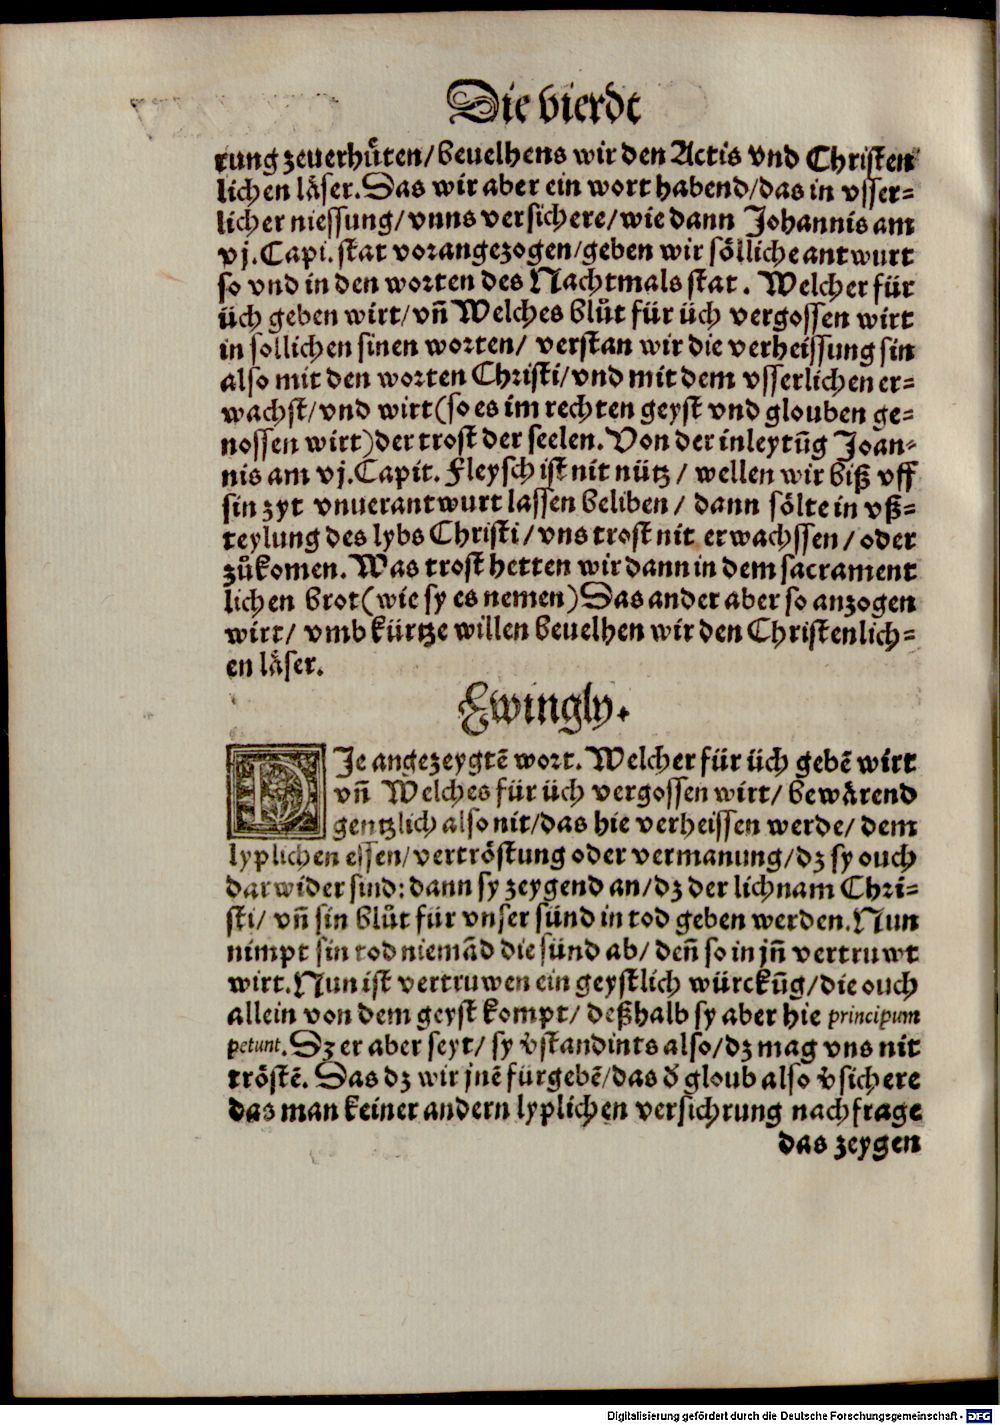 Die vierdt
rung zeuerhuͤten/ beuelhens wir den Actis vnd Christen
lichen laͤser. Das wir aber ein wort habend/ das in vsser⸗
licher niessung/ vnns versichere/ wie dann Johannis am
vj. Capi. stat vorangezogen/ geben wir soͤlliche antwurt
so vnd in den worten des Nachtmals stat. Welcher für
üch geben wirt/ vn̄ Welches bluͦt für üch vergossen wirt
in sollichen sinen worten/ verstan wir die verheissung sin
also mit den worten Christi/ vnd mit dem vsserlichen er⸗
wachst/ vnd wirt (so es im rechten geyst vnd glouben ge⸗
nossen wirt) der trost der seelen. Von der inleytūg Joan⸗
nis am vj. Capit. Fleysch ist nit nütz/ wellen wir biß vff
sin zyt vnuerantwurt lassen beliben/ dann soͤlte in vß⸗
teylung des lybs Christi/ vns trost nit erwachssen/ oder
zuͦkomen. Was trost hetten wir dann in dem sacrament
lichen brot (wie sy es nemen) Das ander aber so anzogen
wirt/ vmb kürtze willen beuelhen wir den Christenlich⸗
en laͤser.
Zwingly.
DJe angezeygtē wort. Welcher für üch gebē wirt
vn̄ Welches für üch vergossen wirt/ bewaͤrend
gentzlich also nit/ das hie verheissen werde/ dem
lyplichen essen/ vertroͤstung oder vermanung/ dz sy ouch
darwider sind: dann sy zeygend an/ dz der lichnam Chri⸗
sti/ vn̄ sin bluͦt für vnser sünd in tod geben werden. Nun
nimpt sin tod niemād die sünd ab/ den̄ so in jn̄ vertruwt
wirt. Nun ist vertruwen ein geystlich würckūg/ die ouch
allein von dem geyst kompt/ deßhalb sy aber hie principum
petunt. Dz er aber seyt/ sy v̊standints also/ dz mag vns nit
troͤstē. Das dz wir jnē fürgebē/ das d̊ gloub also v̊sichere
das man keiner andern lyplichen versichrung nachfrage
das zeygen
Digitalisierung gefördert durch die Deutsche Forschungsgemeinschaft - DFG